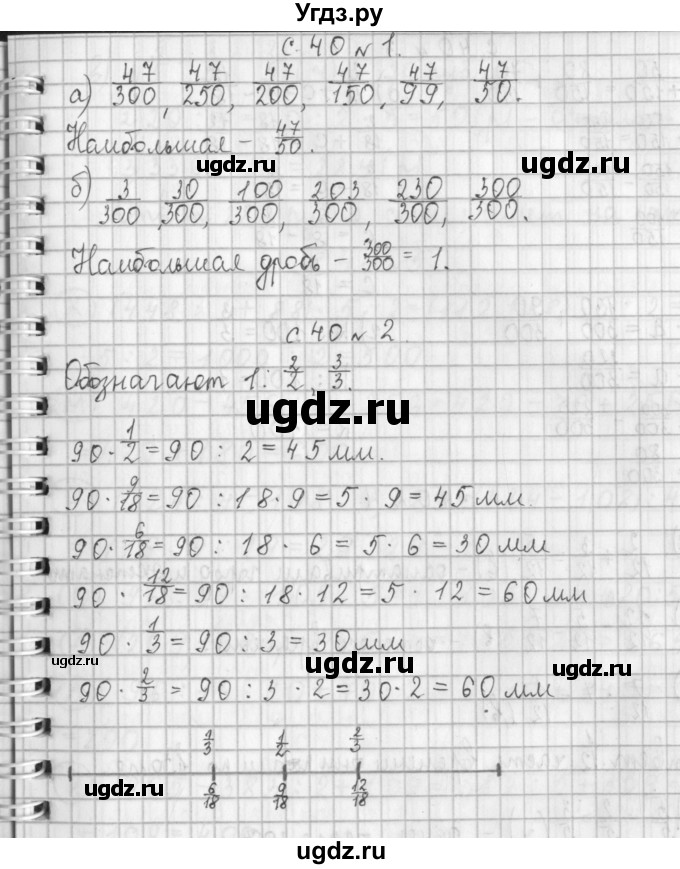 Угдз.ру
с. 40 № 1.
а) 47/300, 47/250, 47/200, 47/150, 47/99, 47/50.
Наибольшая – 47/50.
ugdz.ru ugdz.ru
б) 3/300, 30/300, 100/300, 203/300, 230/300, 300/300.
Наибольшая дробь – 300/300 = 1.
с. 40 № 2.
Обозначают 1: 2/2, 3/3.
ugdz.ru ugdz.ru
90 · 1/2 = 90 : 2 = 45 мм.
90 · 9/18 = 90 : 18 · 9 = 5 · 9 = 45 мм
90 · 6/18 = 90 : 18 · 6 = 5 · 6 = 30 мм
90 · 12/18 = 90 : 18 · 12 = 5 · 12 = 60 мм
90 · 1/3 = 90 : 3 = 30 мм
ugdz.ru ugdz.ru ugdz.ru
90 · 2/3 = 90 : 3 · 2 = 30 · 2 = 60 мм
1/3 1/2 2/3
6/18 9/18 12/18
ugdz.ru ugdz.ru
ugdz.ru